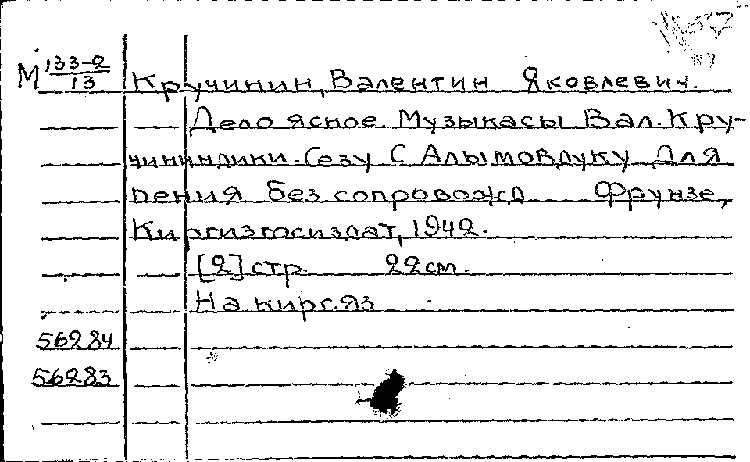 М 133-2/13
Кручинин, Валентин Яковлевич.
Дело ясное. Музыкасы Вал. Кру-
чининдики. Сезу С Алымовдуку. Для
пения без сопровожд Фрунзе,
Киргизгосиздат, 1942.
[2] стр 22 см.
На кирг. яз
56284
56283